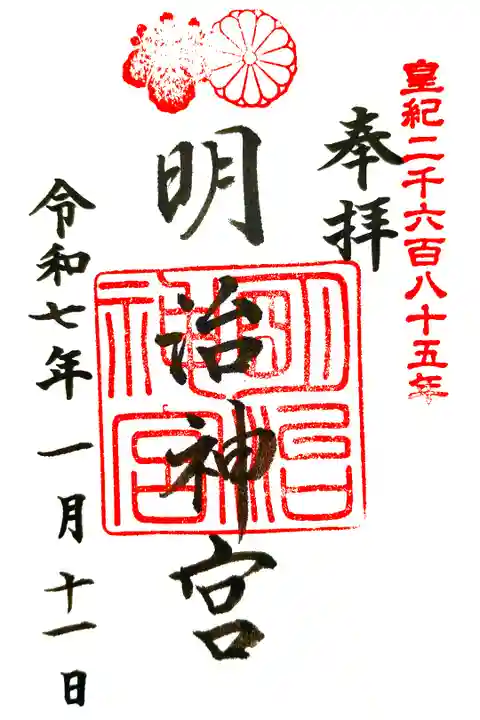 皇紀二千六百八十五年
奉拝
明治神宮
明治神宮
令和七年 一月十一日